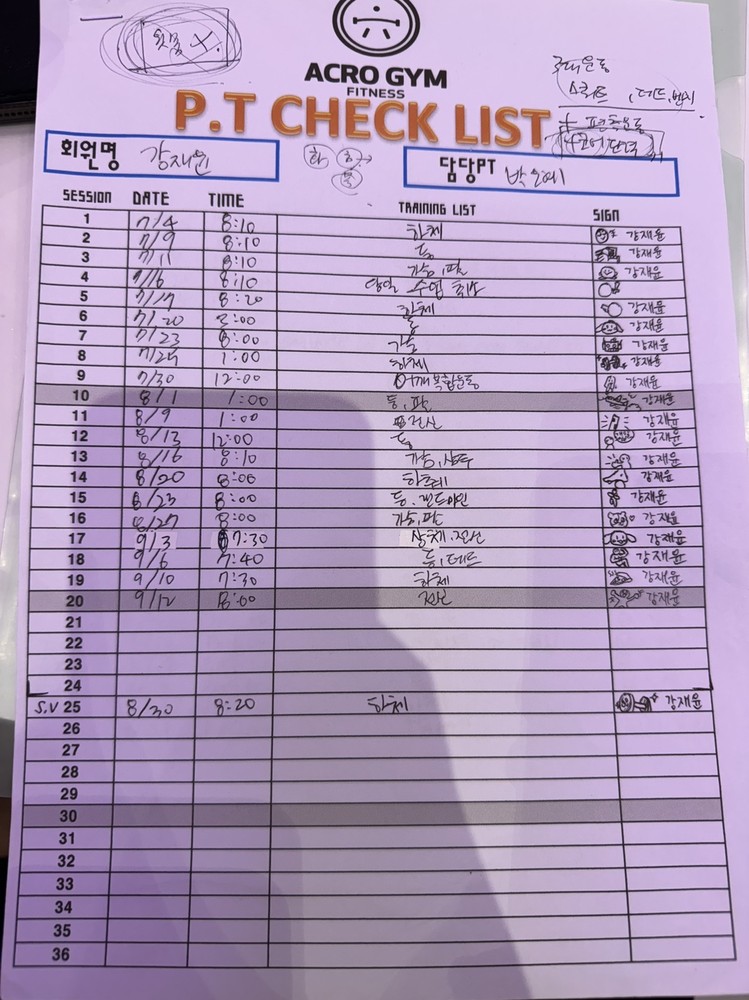 윗몸 X.
ACRO GYM
FITNESS
P.T CHECK LIST
3대운동
스쿼트, 데드, 벤치
+
회원명 강재윤
담당PT
SESSION DATE TIME TRAINING LIST SIGN
1 7/4 8:10 하체 강재윤
2 7/9 8:10 등 강재윤
3 7/11 8:10 가슴, 팔 강재윤
4 7/16 8:10 당일 수업 취소
5 7/17 8:20 하체 강재윤
6 7/20 2:00 등 강재윤
7 7/23 8:00 가슴 강재윤
8 7/25 1:00 하체 강재윤
9 7/30 12:00 어깨복합운동 강재윤
10 8/1 1:00 등, 팔 강재윤
11 8/9 1:00 전신 강재윤
12 8/13 12:00 등 강재윤
13 8/16 8:10 가슴, 삼두 강재윤
14 8/20 8:00 하체 강재윤
15 8/23 8:00 등, 밴드 강재윤
16 8/27 8:00 가슴, 팔 강재윤
17 9/3 7:30 상체, 전신 강재윤
18 9/6 7:40 등, 데드 강재윤
19 9/10 7:30 하체 강재윤
20 9/12 8:00 전신 강재윤
21
22
23
24
S.V 25 8/30 8:20 하체 강재윤
26
27
28
29
30
31
32
33
34
35
36